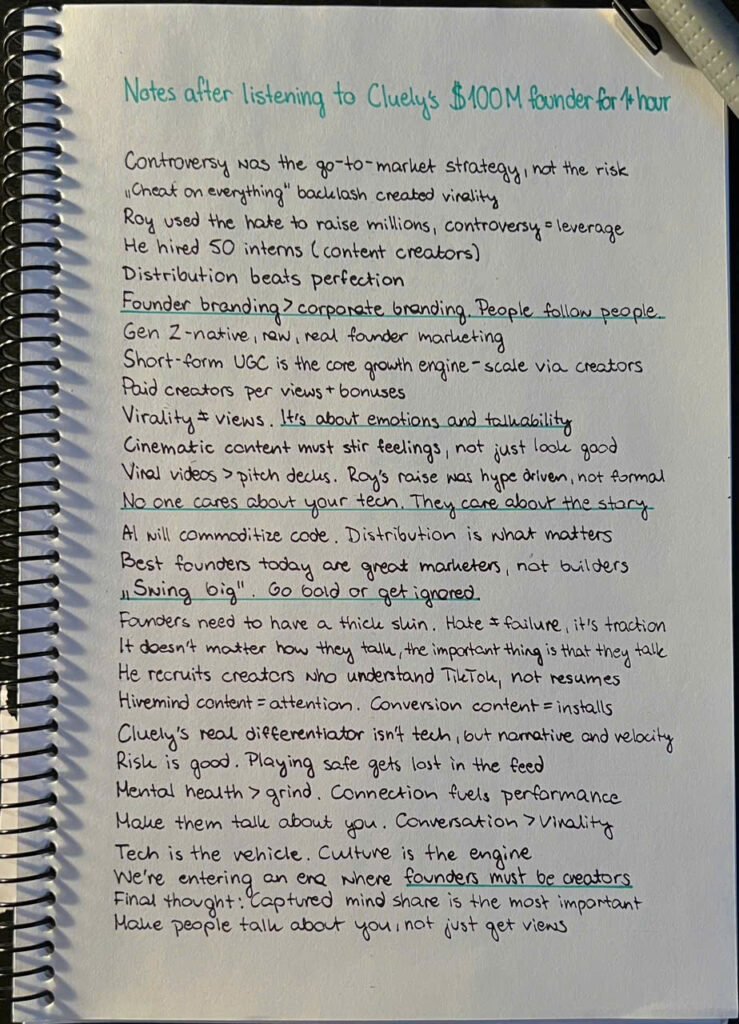 Notes after listening to Cluely's $100M founder for 1+ hour
Controversy was the go-to-market strategy, not the risk
„Cheat on everything" backlash created virality
Roy used the hate to raise millions, controversy = leverage
He hired 50 interns (content creators)
Distribution beats perfection
Founder branding > corporate branding. People follow people.
Gen Z-native, raw, real founder marketing
Short-form UGC is the core growth engine - scale via creators
Paid creators per views + bonuses
Virality ≠ views. It's about emotions and talkability
Cinematic content must stir feelings, not just look good
Viral videos > pitch decks. Roy's raise was hype driven, not formal
No one cares about your tech. They care about the story
AI will commoditize code. Distribution is what matters
Best founders today are great marketers, not builders
„Swing big". Go bold or get ignored.
Founders need to have a thick skin. Hate ≠ failure, it's traction
It doesn't matter how they talk, the important thing is that they talk
He recruits creators who understand TikTok, not resumes
Hivemind content = attention. Conversion content = installs
Cluely's real differentiator isn't tech, but narrative and velocity
Risk is good. Playing safe gets lost in the feed
Mental health > grind. Connection fuels performance
Make them talk about you. Conversation > Virality
Tech is the vehicle. Culture is the engine
We're entering an era where founders must be creators
Final thought: Captured mind share is the most important
Make people talk about you, not just get views